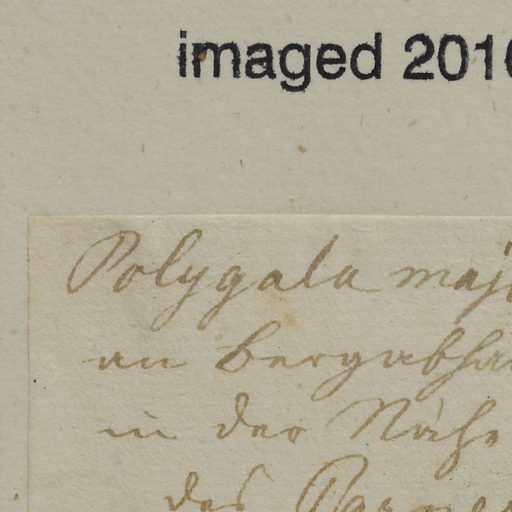 imaged 2010
Polygala maj
an Bergabha
in der Nähe
des